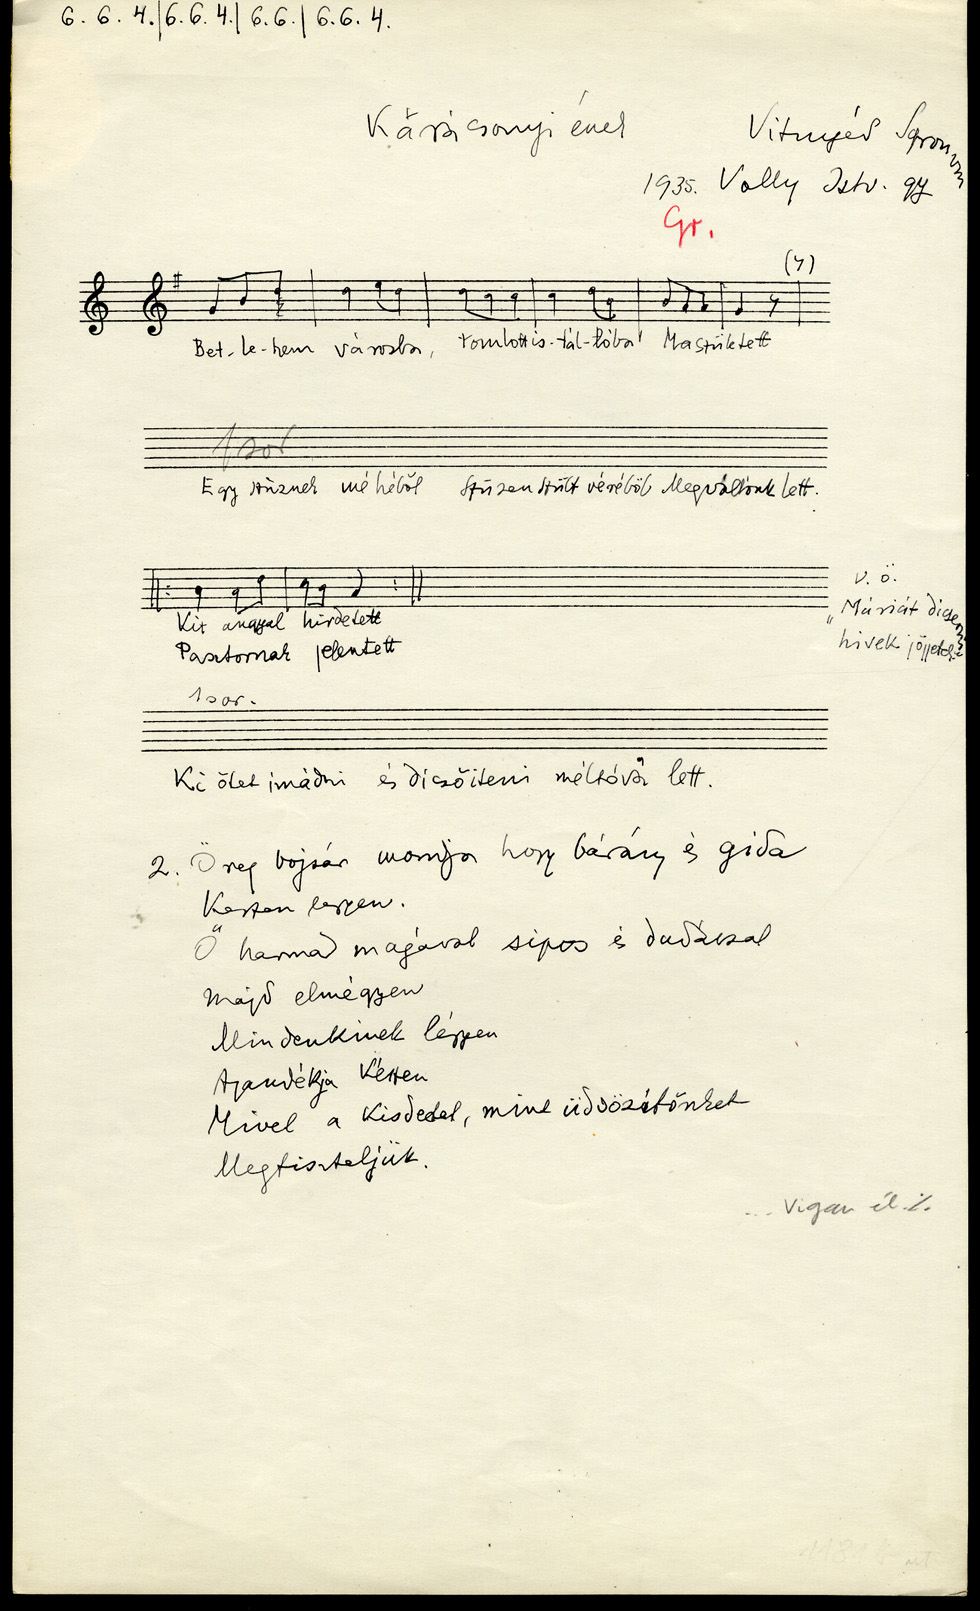 6. 6. 4. | 6. 6. 4. | 6. 6. | 6. 6. 4.
Karácsonyi ének
Vitnyéd Sopron vm
1935. Volly Istv. gy
Gr.
(7)
Bet-le-hem városba, romlott is-tál-lóba' Ma született
1 sor
Egy szűznek méhéből Szűzen szült véréből Megváltónk lett.
Kit angyal hirdetett
Pasztornak jelentett
v. ö.
"Máriát dicsérni
hivek jöjjetek"
1 sor.
Ki őtet imádni és dicsőiteni méltóvá lett.
2. Öreg bojsár mondja hogy bárány és gida
Készen legyen.
Ő harmad magával sipos és dudással
Majd elmégyen
Mindenkinek légyen
Ajándékja készen
Mivel a Kisdedet, mint üdvözítőnket
Megtiszteljük.
... Vigan